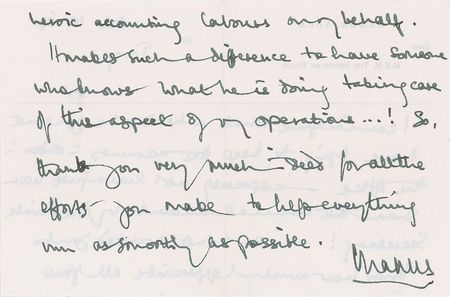 heroic accounting labours on my behalf.
It makes such a difference to have someone
who knows what he is doing taking care
of this aspect of my operations...! So,
thank you very much indeed for all the
efforts you make to help everything
run as smoothly as possible.
Charles